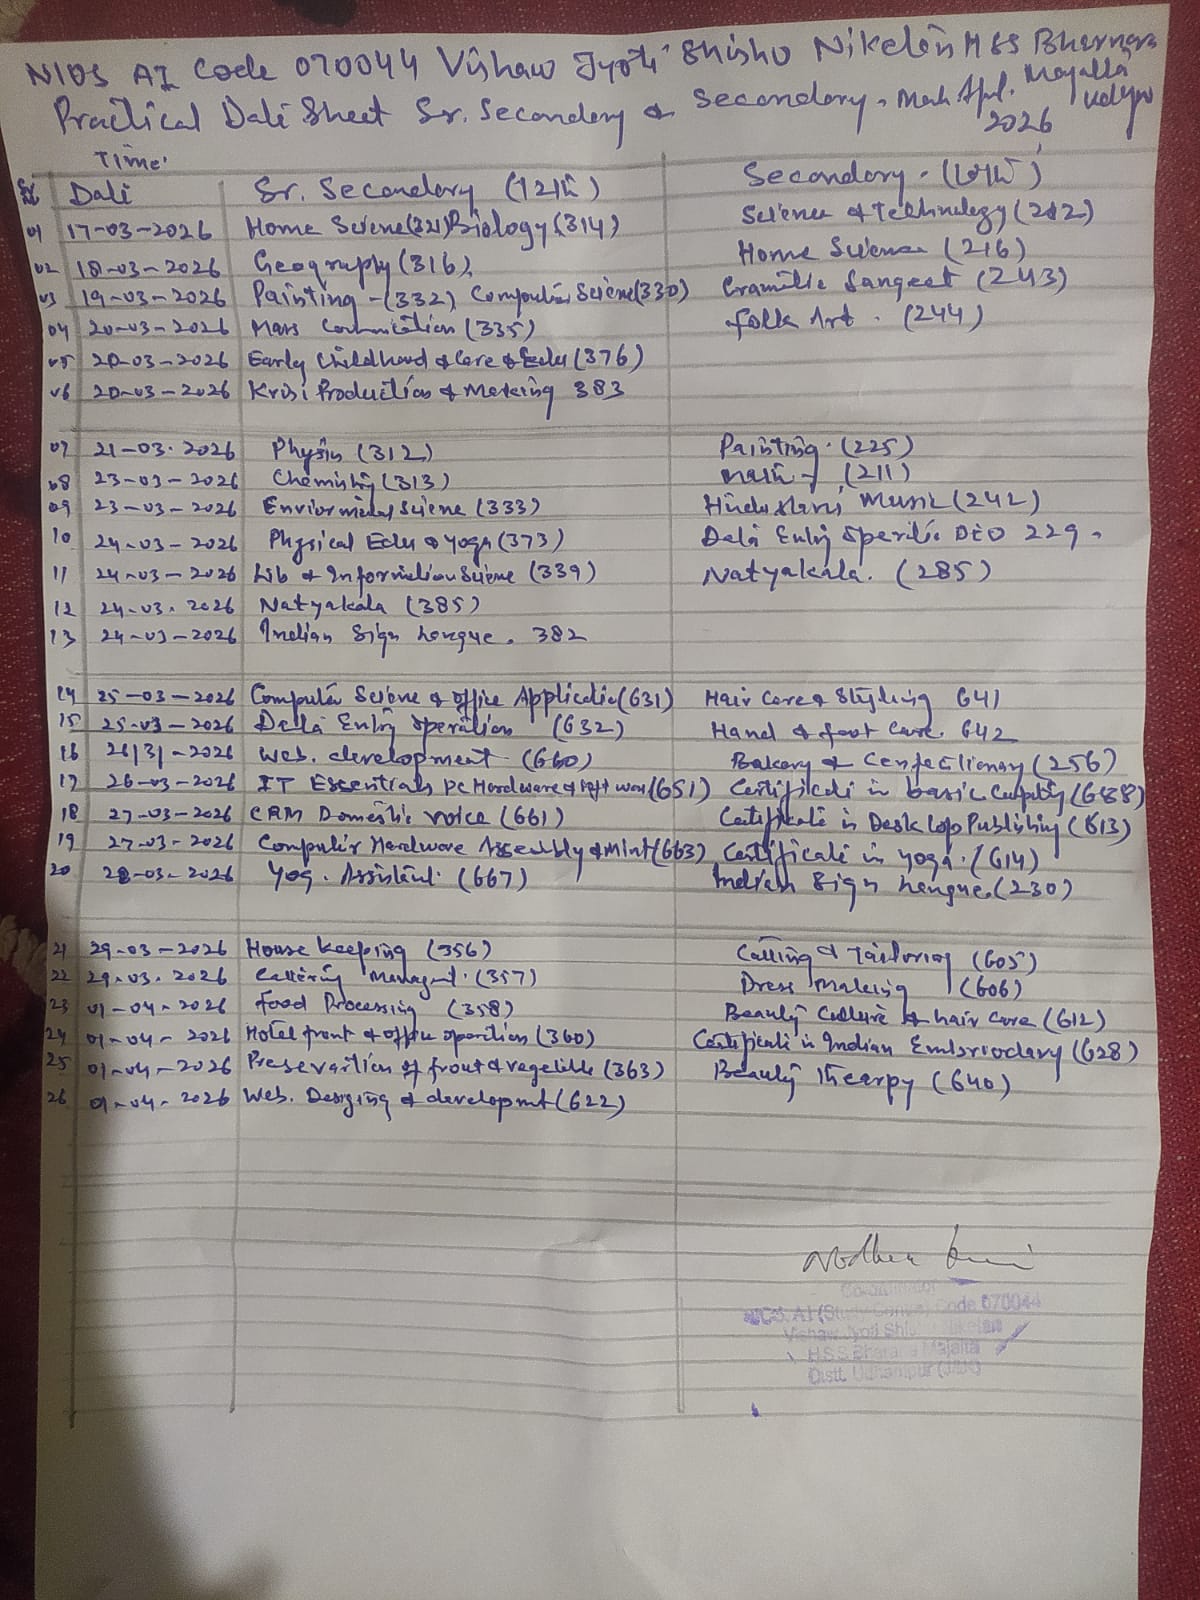 NIOS AI Code 070044 Vishaw Jyoti Shishu Niketan HSS Bharnara
Majalta Udhpr
Practical Date Sheet Sr. Secondary & Secondary. Mach. Apl. 2026
Time.
Date Sr. Secondary (12th) Secondary. (10th)
01 17-03-2026 Home Science (321) Biology (314) Science & Technology (212)
02 18-03-2026 Geography (316) Home Science (216)
03 19-03-2026 Painting - (332) Computer Science (330) Carnatic Sangeet (243)
04 20-03-2026 Mass Communication (335) Folk Art. (244)
05 20-03-2026 Early Childhood & Care & Edu (376)
06 20-03-2026 Krisi Production & Marking 383
07 21-03.2026 Physics (312) Painting. (225)
08 23-03-2026 Chemistry (313) Math - (211)
09 23-03-2026 Enviormental Science (333) Hindustani Music (242)
10 24-03-2026 Physical Edu & Yoga (373) Data Entry Operatic DEO 229.
11 24-03-2026 Lib & Information Science (339) Natyakala. (285)
12 24.03.2026 Natyakala (385)
13 24-03-2026 Indian Sign Langue. 382
14 25-03-2026 Computer Science & office Application (631) Hair Care & Styling 641
15 25-03-2026 Data Entry Operation (632) Hand & foot Care. 642
16 26/3/-2026 Web. development (660) Bakary & Confectionary (256)
17 26-03-2026 IT Essentials PC Hardware & Soft war (651) Certificate in basic Computing (688)
18 27-03-2026 CRM Domestic voice (661) Certificate in Desk top Publishing (613)
19 27-03-2026 Computer Hardware Assembly & Mint (663) Certificate in yoga. (614)
20 28-03-2026 Yog. Assistant. (667) Indian Sign Langue. (230)
21 29-03-2026 House keeping (356) Cutting & Tailoring (605)
22 29.03.2026 Cattering Managmt. (357) Dress Making (606)
23 01-04-2026 Food Processing (358) Beauty Culture & hair Care (612)
24 01-04-2026 Hotel front & office opration (360) Certificate in Indian Embrriodary (628)
25 01-04-2026 Preservartion of frout & vegetible (363) Beauty Thearpy (640)
26 01-04-2026 Web. Desging & developmt (622)
Co-ordinator
AI (Study Centre) Code 070044
Vishaw Jyoti Shishu Niketan
H.S.S Bharnara Majalta
Distt. Udhampur (J&K)